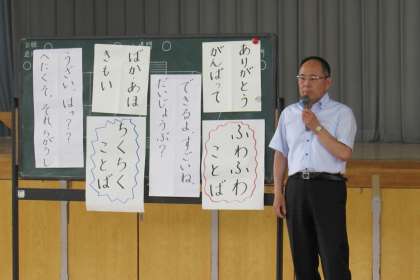 ありがとう
がんばって
できるよ、すごいね
だいじょうぶ?
ふわふわ
ことば
ばか あほ
きもい
うざい はっ??
へたくそ、それちがうし
ちくちく
ことば